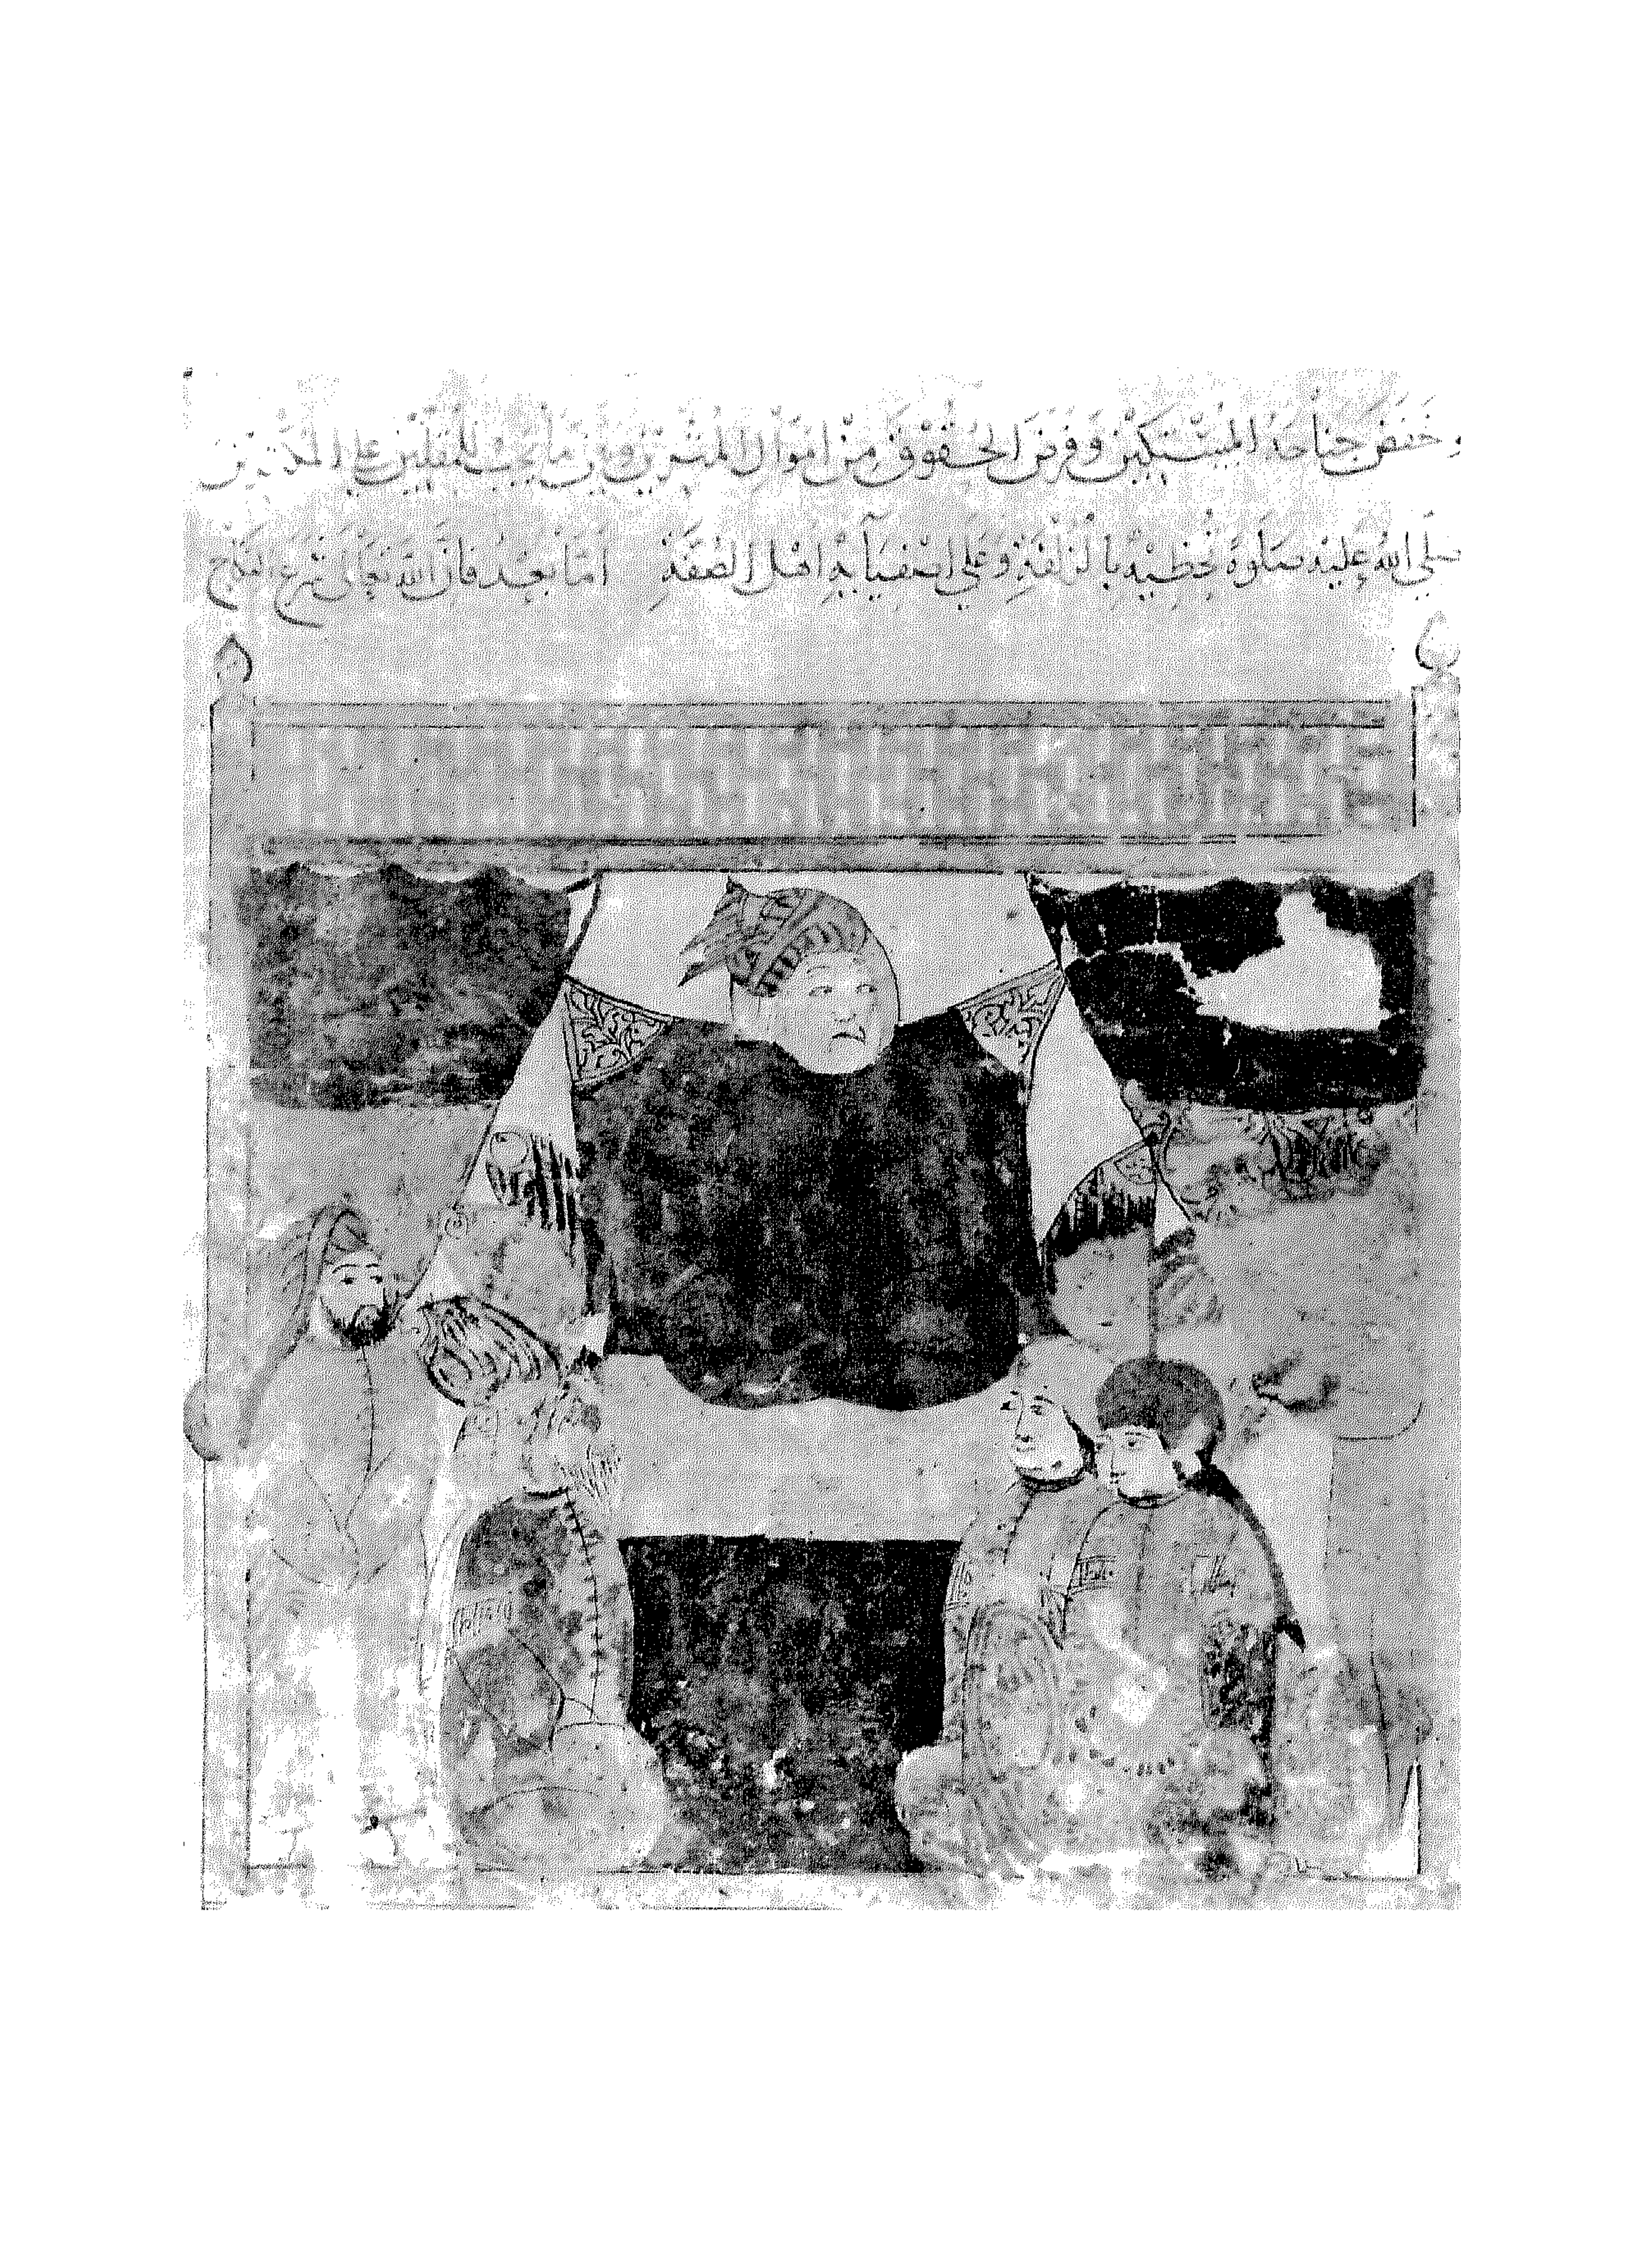 وخفض جناحه للمستكين وفرض الحقوق من اموال المثرين وبين ما يجب للمقلين على المكثرين
صلى الله عليه صلوة تحظيه بالزلفة وعلى اصفيآيه اهل الصفة اما بعد فان الله تعالى شرع النكاح